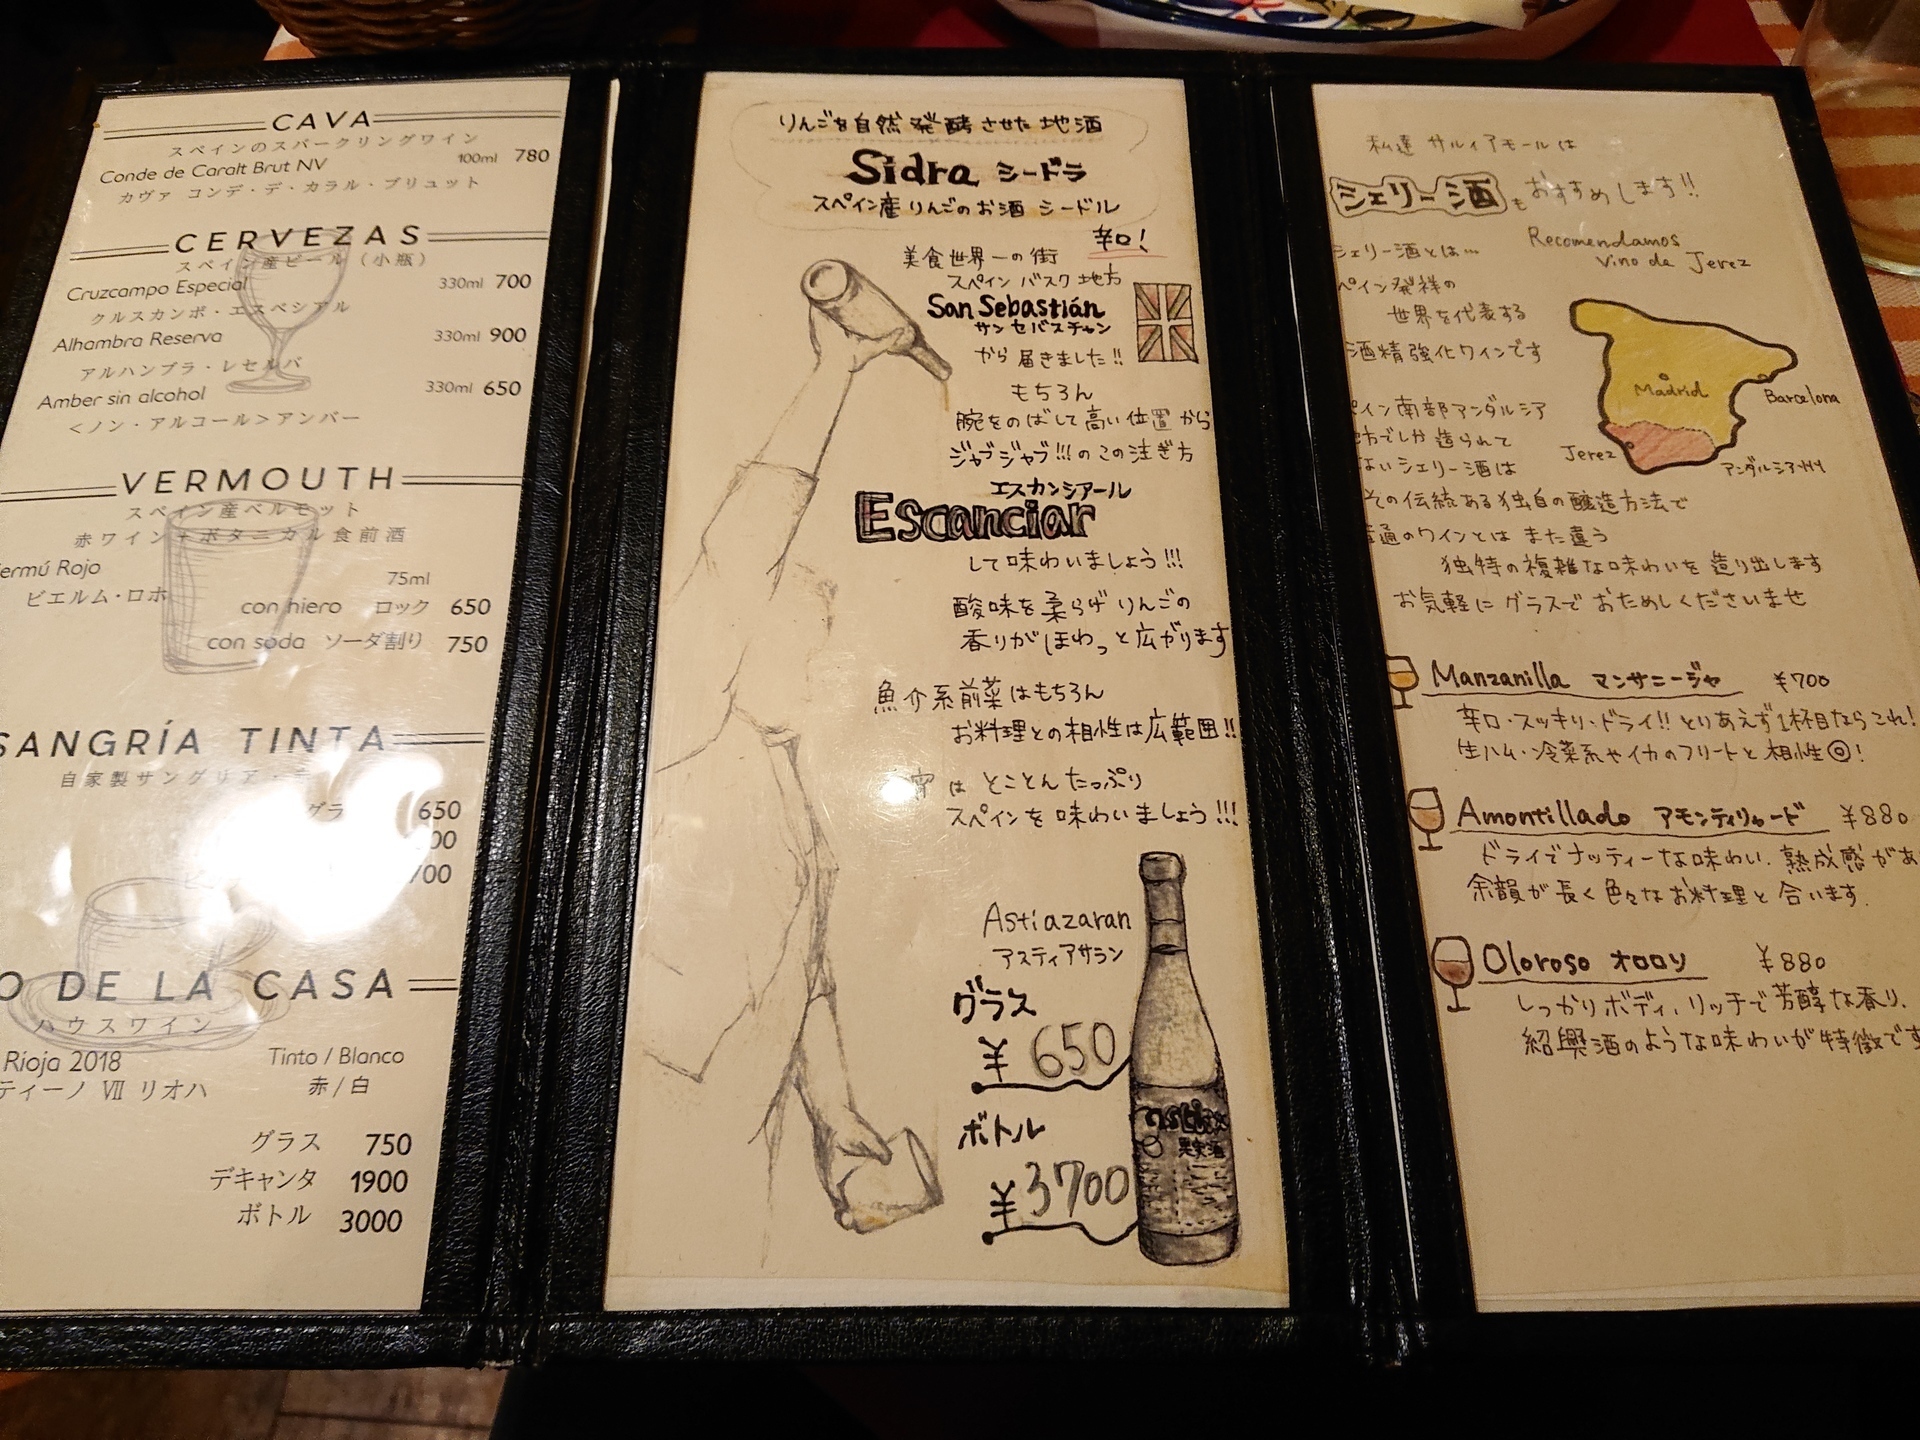 CAVA
スペインのスパークリングワイン
Conde de Caralt Brut NV 100ml 780
カヴァ コンデ・デ・カラル・ブリュット
CERVEZAS
スペイン産ビール（小瓶）
Cruzcampo Especial 330ml 700
クルスカンポ・エスペシアル
Alhambra Reserva 330ml 900
アルハンブラ・レセルバ
Amber sin alcohol 330ml 650
＜ノン・アルコール＞アンバー
VERMOUTH
スペイン産ベルモット
赤ワイン+ボタニカル食前酒
ermú Rojo 75ml
ビエルム・ロホ
con hiero ロック 650
con soda ソーダ割り 750
SANGRÍA TINTA
自家製サングリア・
グラ 650
00
700
O DE LA CASA
ハウスワイン
Rioja 2018 Tinto / Blanco
ティーノ Ⅶ リオハ 赤 / 白
グラス 750
デキャンタ 1900
ボトル 3000
りんごを自然発酵させた地酒
Sidra シードラ
スペイン産りんごのお酒 シードル
辛口！
美食世界一の街
スペイン バスク地方
San Sebastián
サンセバスチャン
から届きました!!
もちろん
腕をのばして高い位置から
ジャブジャブ!!!のこの注ぎ方
エスカンシアール
Escanciar
して味わいましょう!!!
酸味を柔らげ りんごの
香りがほわっと広がります
魚介系前菜はもちろん
お料理との相性は広範囲!!
宵は とことんたっぷり
スペインを味わいましょう!!!
Astiazaran
アスティアサラン
グラス
¥650
ボトル
¥3700
果実酒
私達 サルイアモールは
シェリー酒もおすすめします!!
Recomendamos
Vino de Jerez
シェリー酒とは…
ペイン発祥の
世界を代表する
酒精強化ワインです
Madrid
Barcelona
Jerez
アンダルシア州
ペイン南部アンダルシア
地方でしか造られて
ないシェリー酒は
その伝統ある独自の醸造方法で
普通のワインとは また違う
独特の複雑な味わいを造り出します
お気軽にグラスでおためしくださいませ
Manzanilla マンサニージャ ¥700
辛口・スッキリ・ドライ!! とりあえず1杯目ならこれ!
生ハム・冷菜系やイカのフリートと相性◎!
Amontillado アモンティリャード ¥880
ドライでナッティーな味わい、熟成感があ
余韻が長く色々なお料理と合います.
Oloroso オロロソ ¥880
しっかりボディ、リッチで芳醇な香り、
紹興酒のような味わいが特徴です